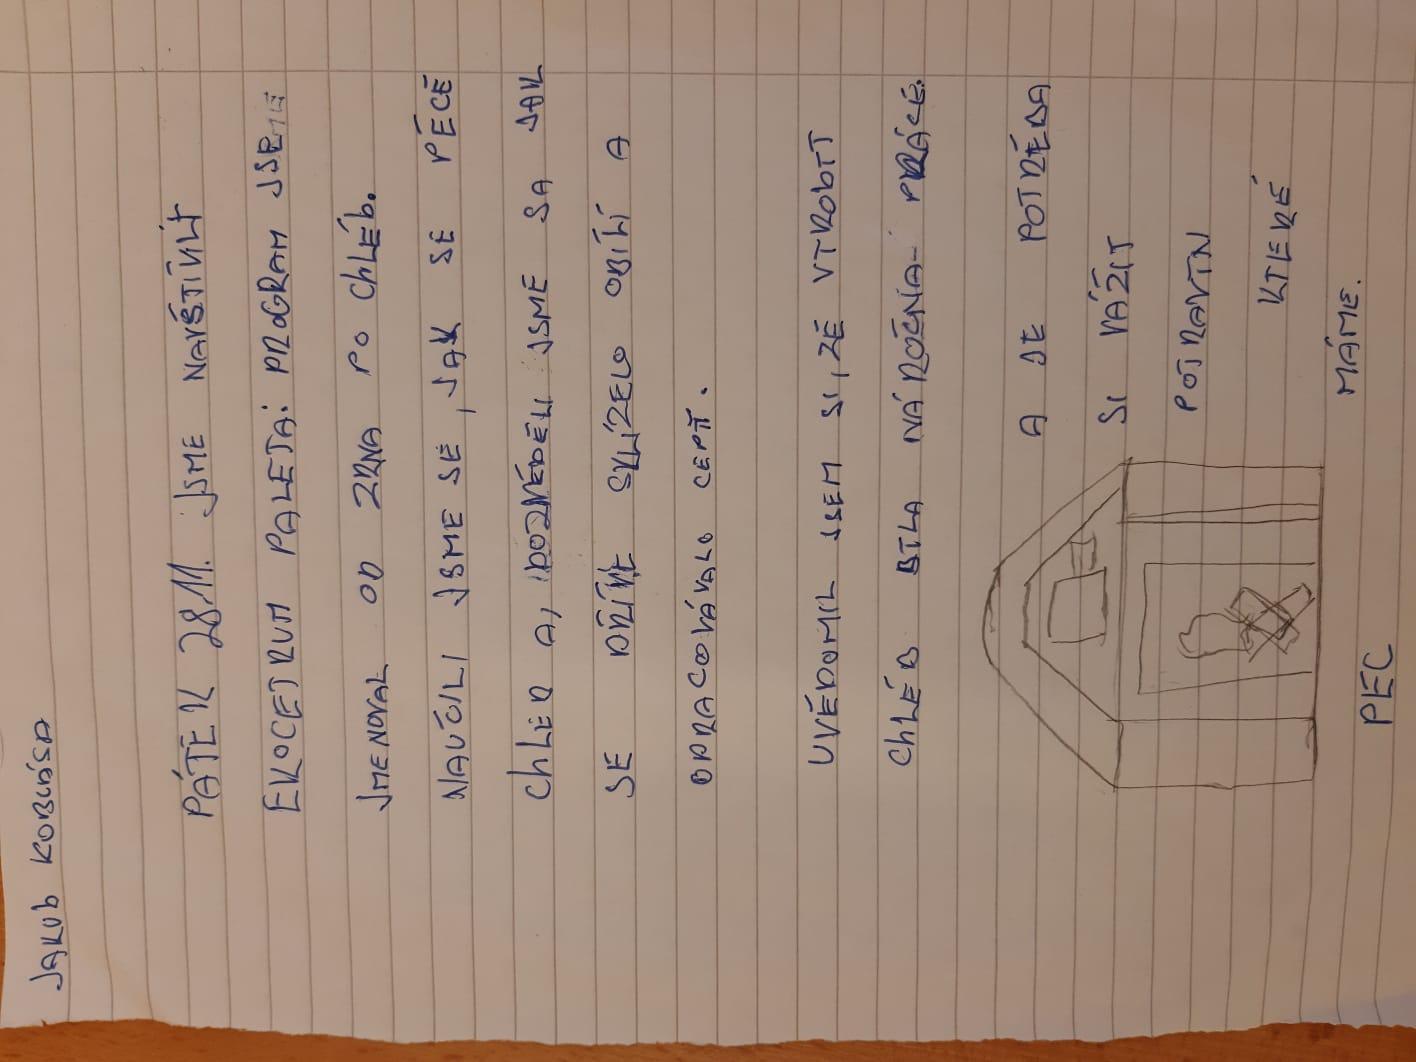 JAKUB KOBLÁSA
PÁTEK 28.11. JSME NAVŠTÍVILY
EKOCETRUM PALETA: PROGRAM JSEME
JMENOVAL OD ZRNA PO CHLÉB.
NAUČILI JSME SE, JAK SE PÉCĚ
CHLEB A, DOZVĚDĚLI JSME SA JAK
SE DŘÍVE SKLÍZELO OBILÍ A
OPRACOVÁVALO CEPY.
UVĚDOMIL JSEM SI, ŽE VYROBYT
CHLÉB BYLA NÁROČNÁ PRÁCE.
A JE POTŘEBA
SI VÁŽIT
POTRAVYN
KTERÉ
MÁME.
PEC